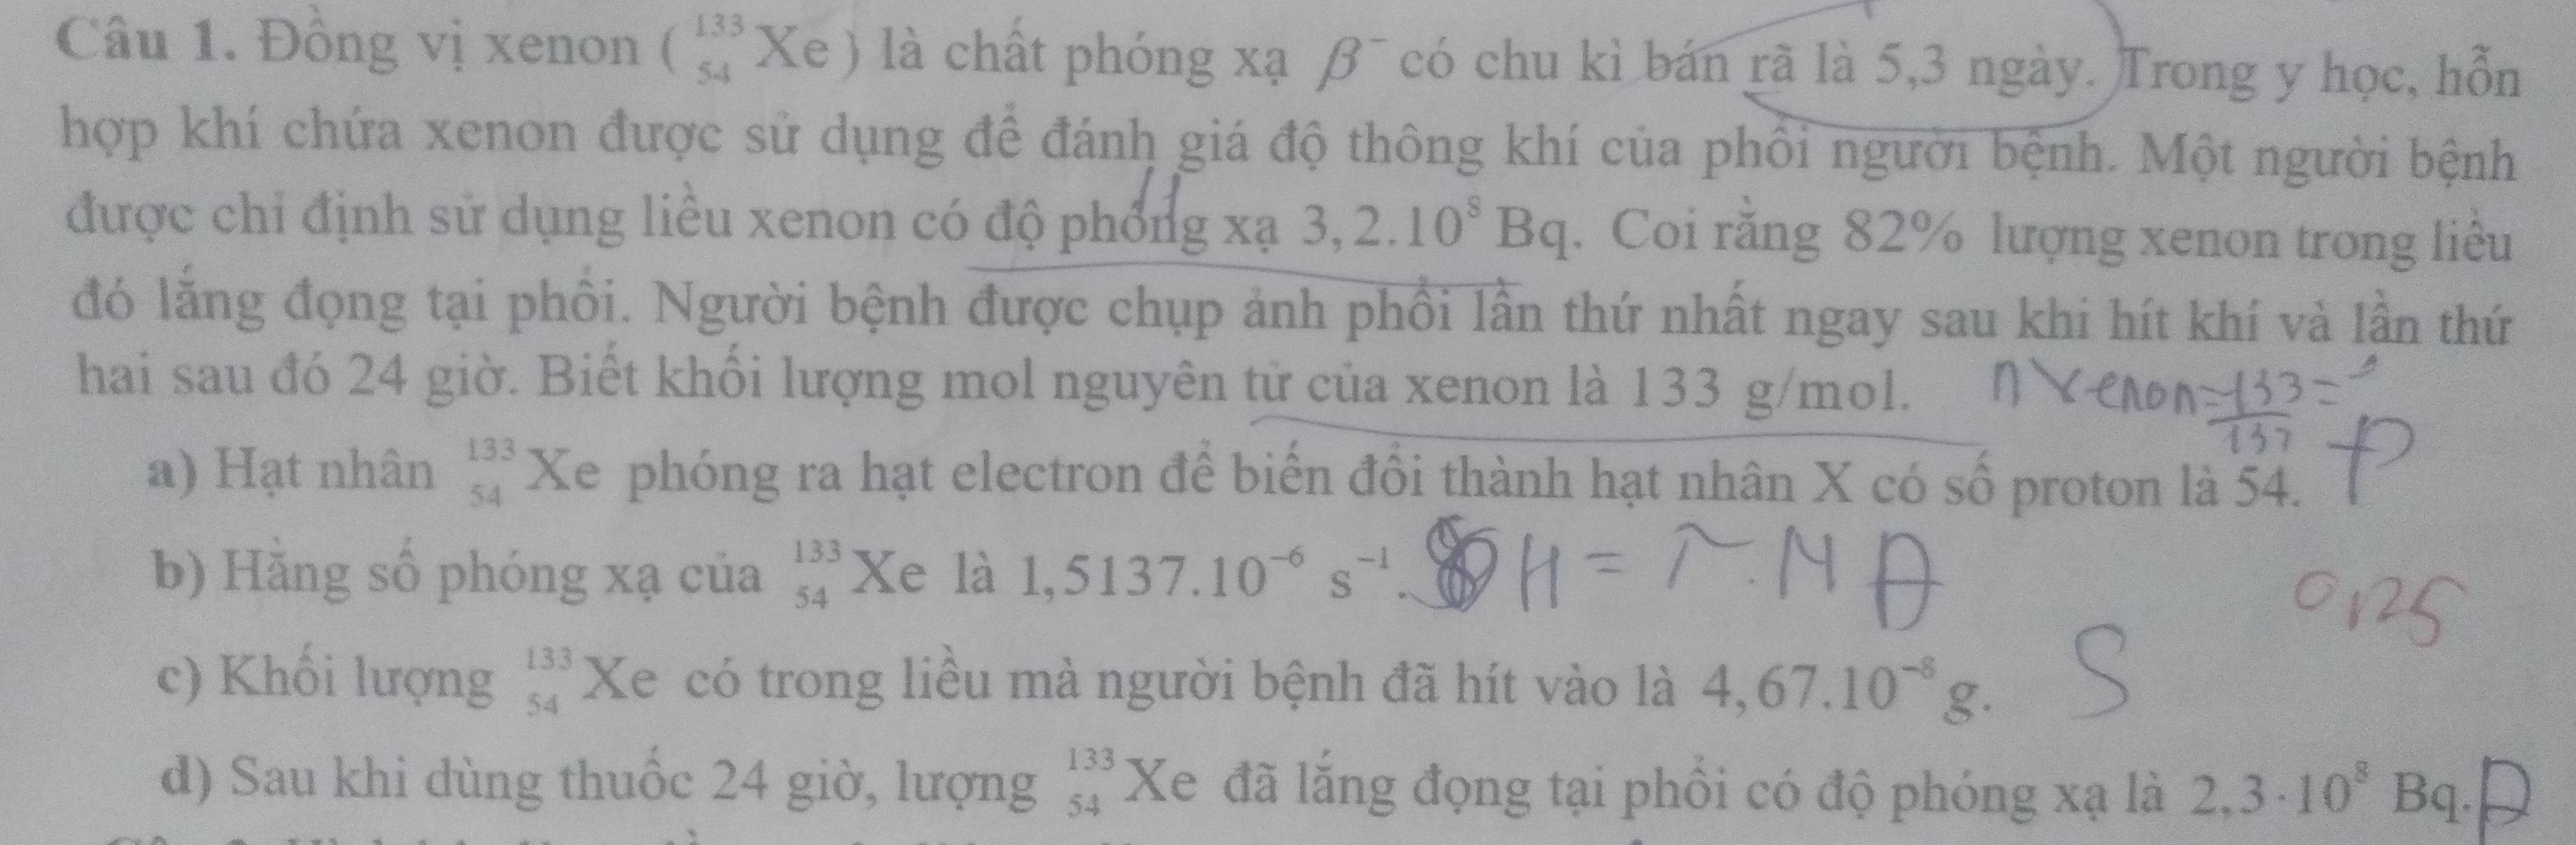 Câu 1. Đồng vị xenon ( ¹³³₅₄Xe ) là chất phóng xạ β⁻ có chu kì bán rã là 5,3 ngày. Trong y học, hỗn
hợp khí chứa xenon được sử dụng để đánh giá độ thông khí của phổi người bệnh. Một người bệnh
được chỉ định sử dụng liều xenon có độ phóng xạ 3,2.10⁸ Bq. Coi rằng 82% lượng xenon trong liều
đó lắng đọng tại phổi. Người bệnh được chụp ảnh phổi lần thứ nhất ngay sau khi hít khí và lần thứ
hai sau đó 24 giờ. Biết khối lượng mol nguyên tử của xenon là 133 g/mol. n Xenon =
a) Hạt nhân ¹³³₅₄Xe phóng ra hạt electron để biến đổi thành hạt nhân X có số proton là 54.
b) Hằng số phóng xạ của ¹³³₅₄Xe là 1,5137.10⁻⁶ s⁻¹. H = Đ
0,25
c) Khối lượng ¹³³₅₄Xe có trong liều mà người bệnh đã hít vào là 4,67.10⁻⁸ g. S
d) Sau khi dùng thuốc 24 giờ, lượng ¹³³₅₄Xe đã lắng đọng tại phổi có độ phóng xạ là 2,3·10⁸ Bq. Đ